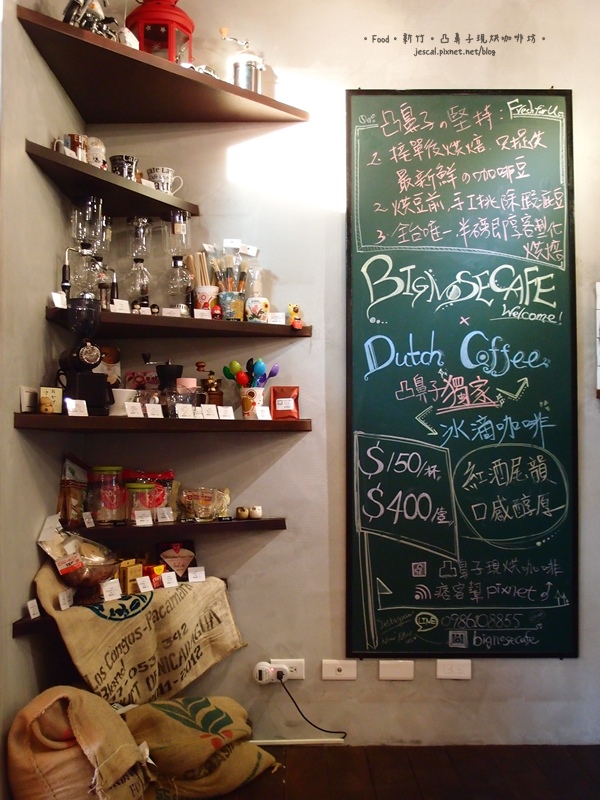 • Food • 新竹 • 凸鼻子現烘咖啡坊 •
jescal.pixnet.net/blog
凸鼻子の堅持: Fresh for U.
1. 接單後烘焙 只提供
最新鮮の咖啡豆
2. 烘豆前,手工挑除瑕疵豆
3. 全台唯一半磅即享客製化
烘焙
BIGNOSECAFE
Welcome!
×
Dutch Coffee
凸鼻子獨家
冰滴咖啡
$150/杯
$400/壺
紅酒尾韻
口感醇厚
凸鼻子現烘咖啡
痞客幫pixnet
LINE 0986108855
bignosecafe
Los Congos - Pacamara